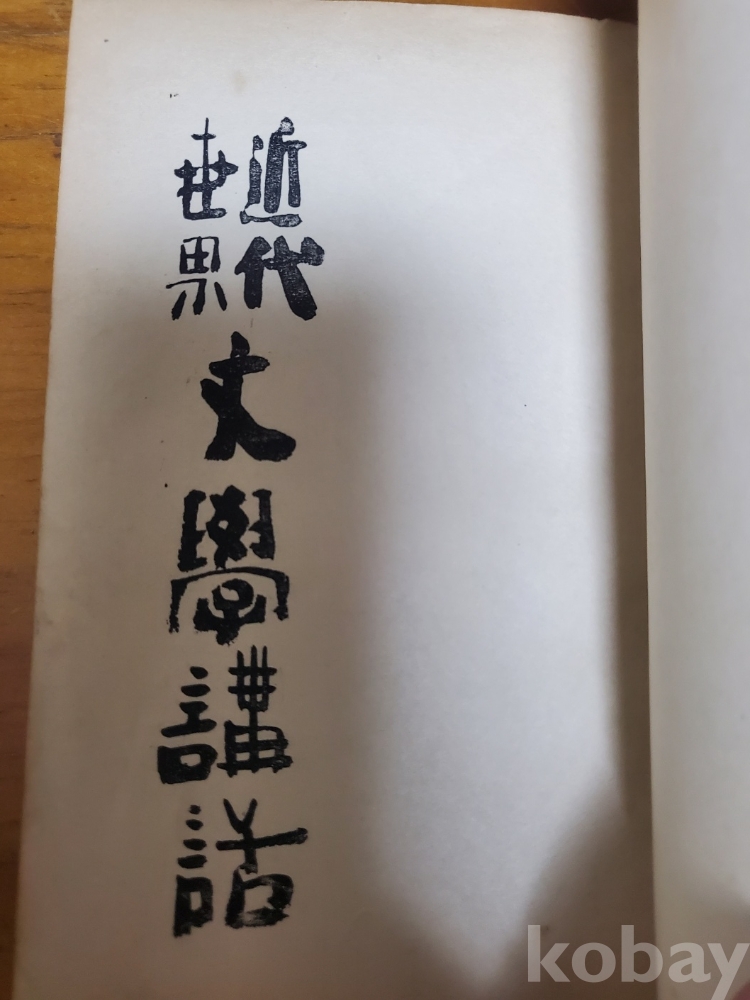 近代
世界
文學講話
kobay